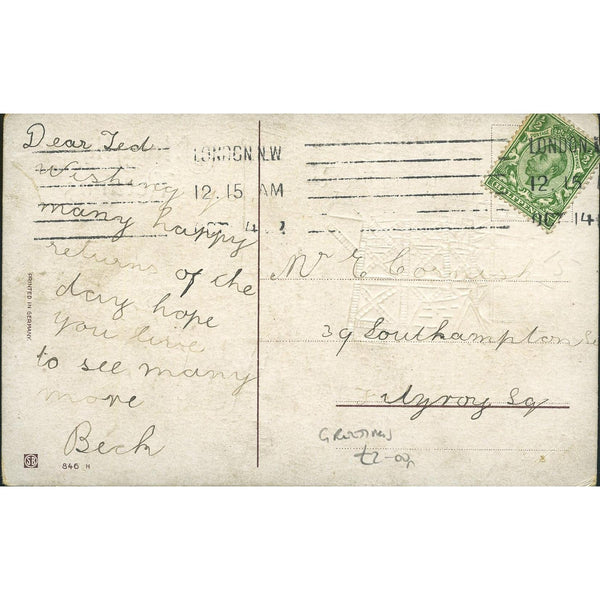 Dear Ted
Wishing you
many happy
returns of the
day hope
you live
to see many
more
Beck
LONDON.N.W
12.15 AM
OCT 14
LONDON.N
12.15
OCT 14
Mr E Cornish
39 Southampton
Fitzroy Sq
GREETINGS
£2-00
PRINTED IN GERMANY.
SB
846 H